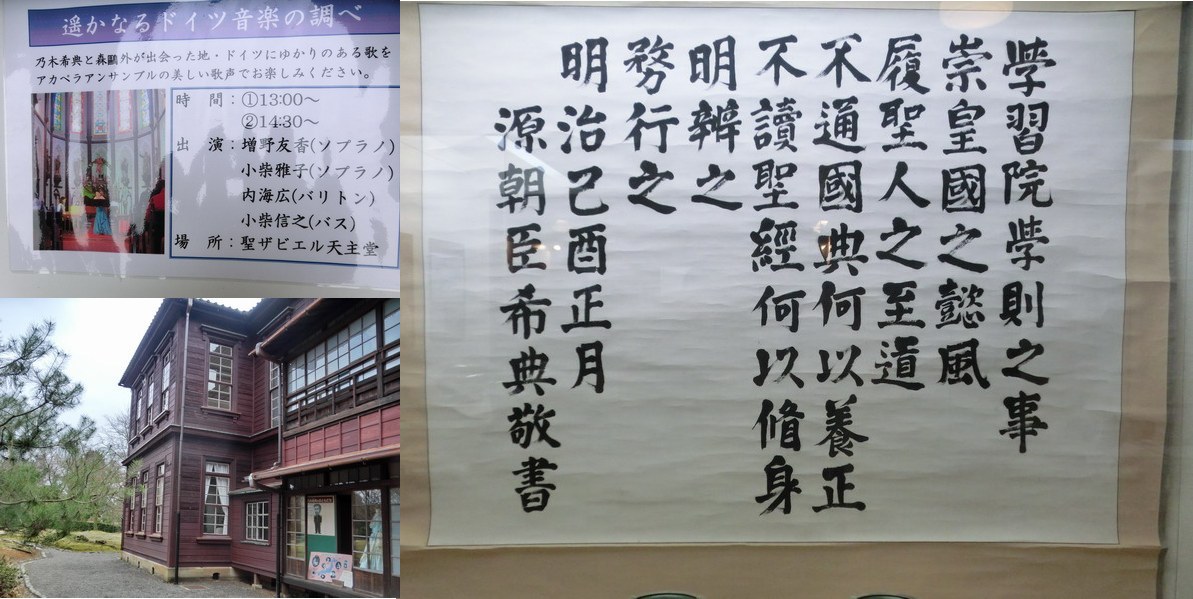 遥かなるドイツ音楽の調べ
乃木希典と森鷗外が出会った地・ドイツにゆかりのある歌を
アカペラアンサンブルの美しい歌声でお楽しみください。
時　間：①13:00～
②14:30～
出　演：増野友香(ソプラノ)
小柴雅子(ソプラノ)
内海広(バリトン)
小柴信之(バス)
場　所：聖ザビエル天主堂
學習院學則之事
崇皇國之懿風
履聖人之至道
不通國典何以養正
不讀聖經何以脩身
明辨之
務行之
明治己酉正月
源朝臣希典敬書